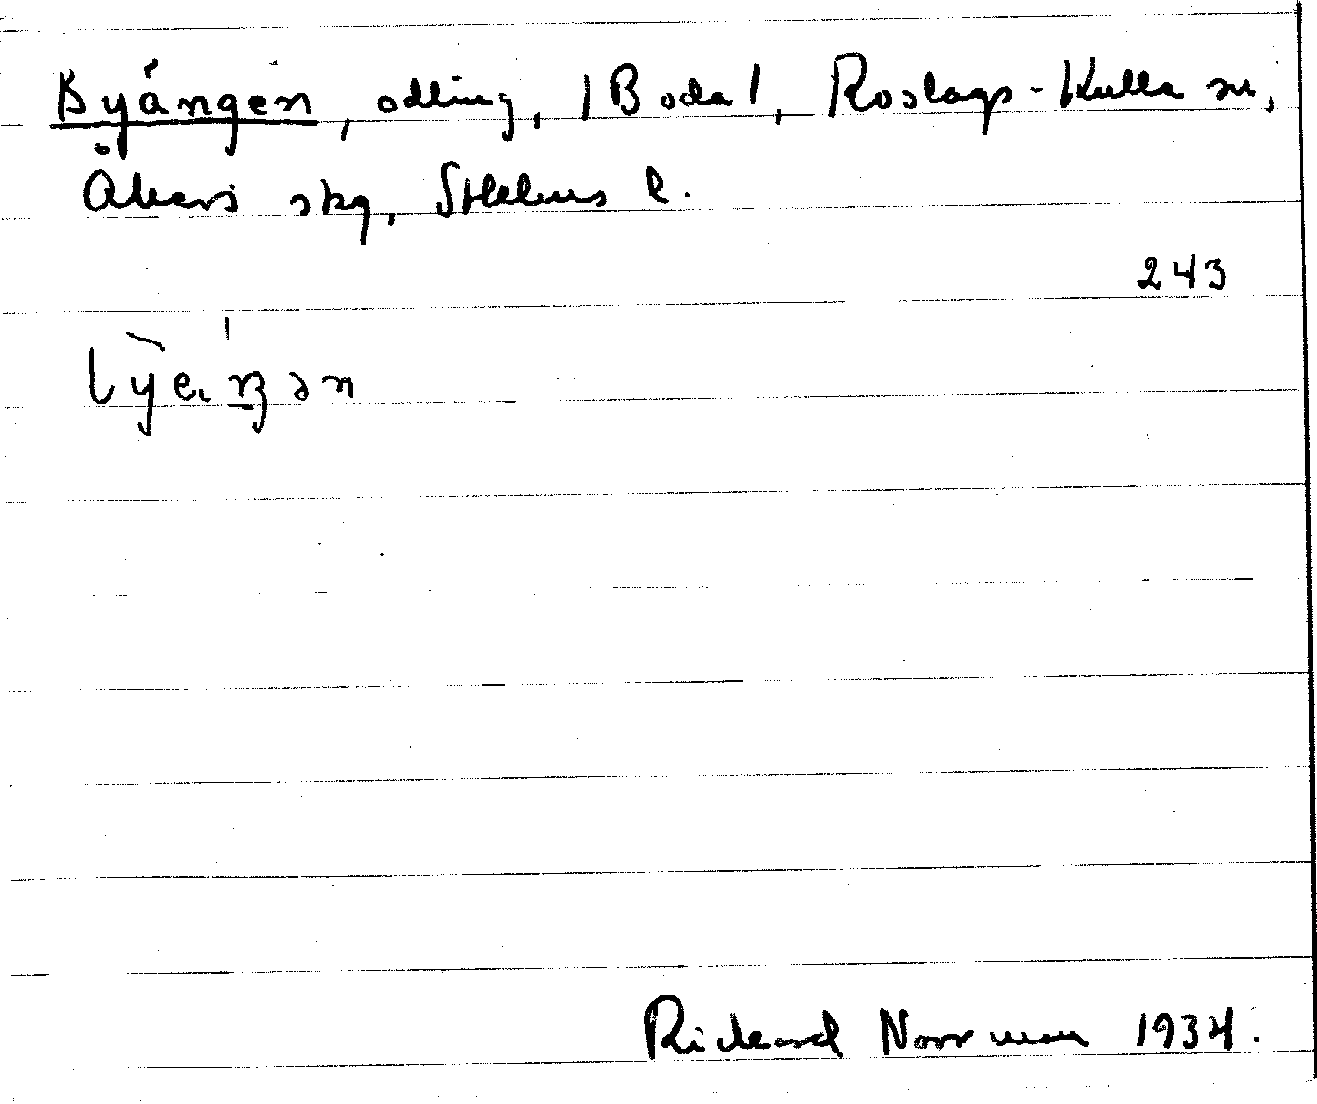 Byängen, odling, /Boda/, Roslags-Kulla sn,
Åkers skg, Sthlms l.
243
Rickard Norrman 1934.